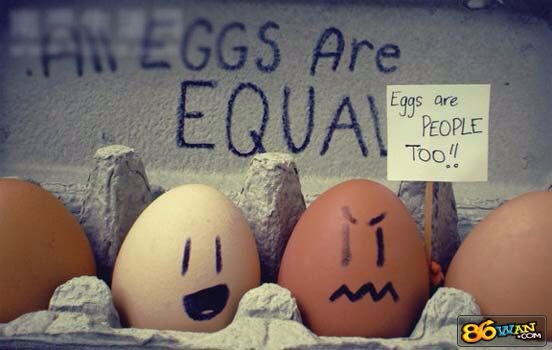 EGGS Are
EQUAL
Eggs are
PEOPLE
TOO!!
86WAN
.COM